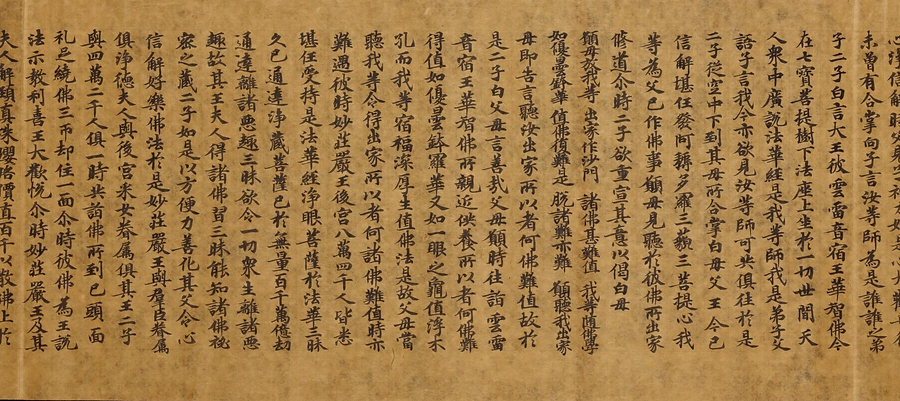 未曾有合掌向子言汝等師為是誰誰之弟
子二子白言大王彼雲雷音宿王華智佛今
在七寶菩提樹下法座上坐於一切世間天
人眾中廣說法華經是我等師我是弟子父
語子言我今亦欲見汝等師可共俱往於是
二子從空中下到其母所合掌白母父王今已
信解堪任發阿耨多羅三藐三菩提心我
等為父已作佛事願母見聽於彼佛所出家
修道尒時二子欲重宣其意以偈白母
願母放我等 出家作沙門 諸佛甚難值 我等隨佛學
如優曇鉢華 值佛復難是 脫諸難亦難 願聽我出家
母即告言聽汝出家所以者何佛難值故於
是二子白父母言善哉父母願時往詣雲雷
音宿王華智佛所親近供養所以者何佛難
得值如優曇鉢羅華又如一眼之龜值浮木
孔而我等宿福深厚生值佛法是故父母當
聽我等令得出家所以者何諸佛難值時亦
難遇彼時妙莊嚴王後宮八萬四千人皆悉
堪任受持是法華經淨眼菩薩於法華三昧
久已通達淨藏菩薩已於無量百千萬億劫
通達離諸惡趣三昧欲令一切眾生離諸惡
趣故其王夫人得諸佛習三昧能知諸佛祕
密之藏二子如是以方便力善化其父令心
信解好樂佛法於是妙莊嚴王與群臣眷屬
俱淨德夫人與後宮采女眷屬俱其王二子
與四萬二千人俱一時共詣佛所到已頭面
礼足繞佛三帀却住一面尒時彼佛為王說
法示教利喜王大歡悅尒時妙莊嚴王及其
夫人解頸真珠瓔珞價直百千以散佛上於